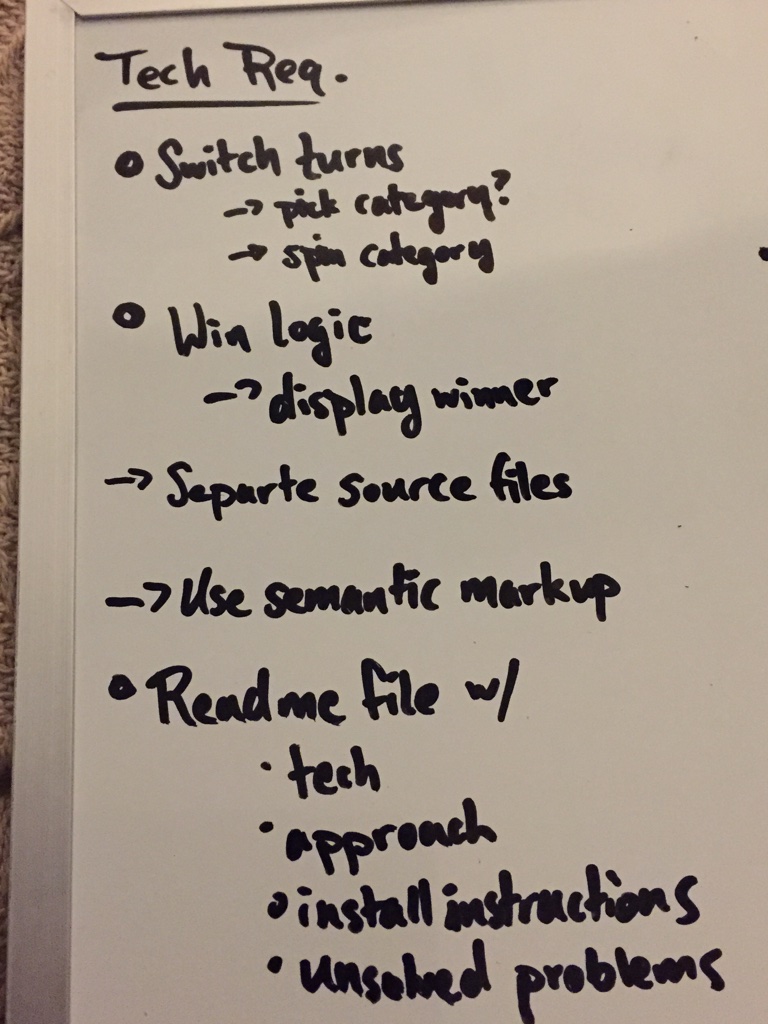 Tech Req.
• Switch turns
→ pick category?
→ spin category
• Win logic
→ display winner
→ Separte source files
→ Use semantic markup
• Readme file w/
• tech
• approach
• install instructions
• unsolved problems